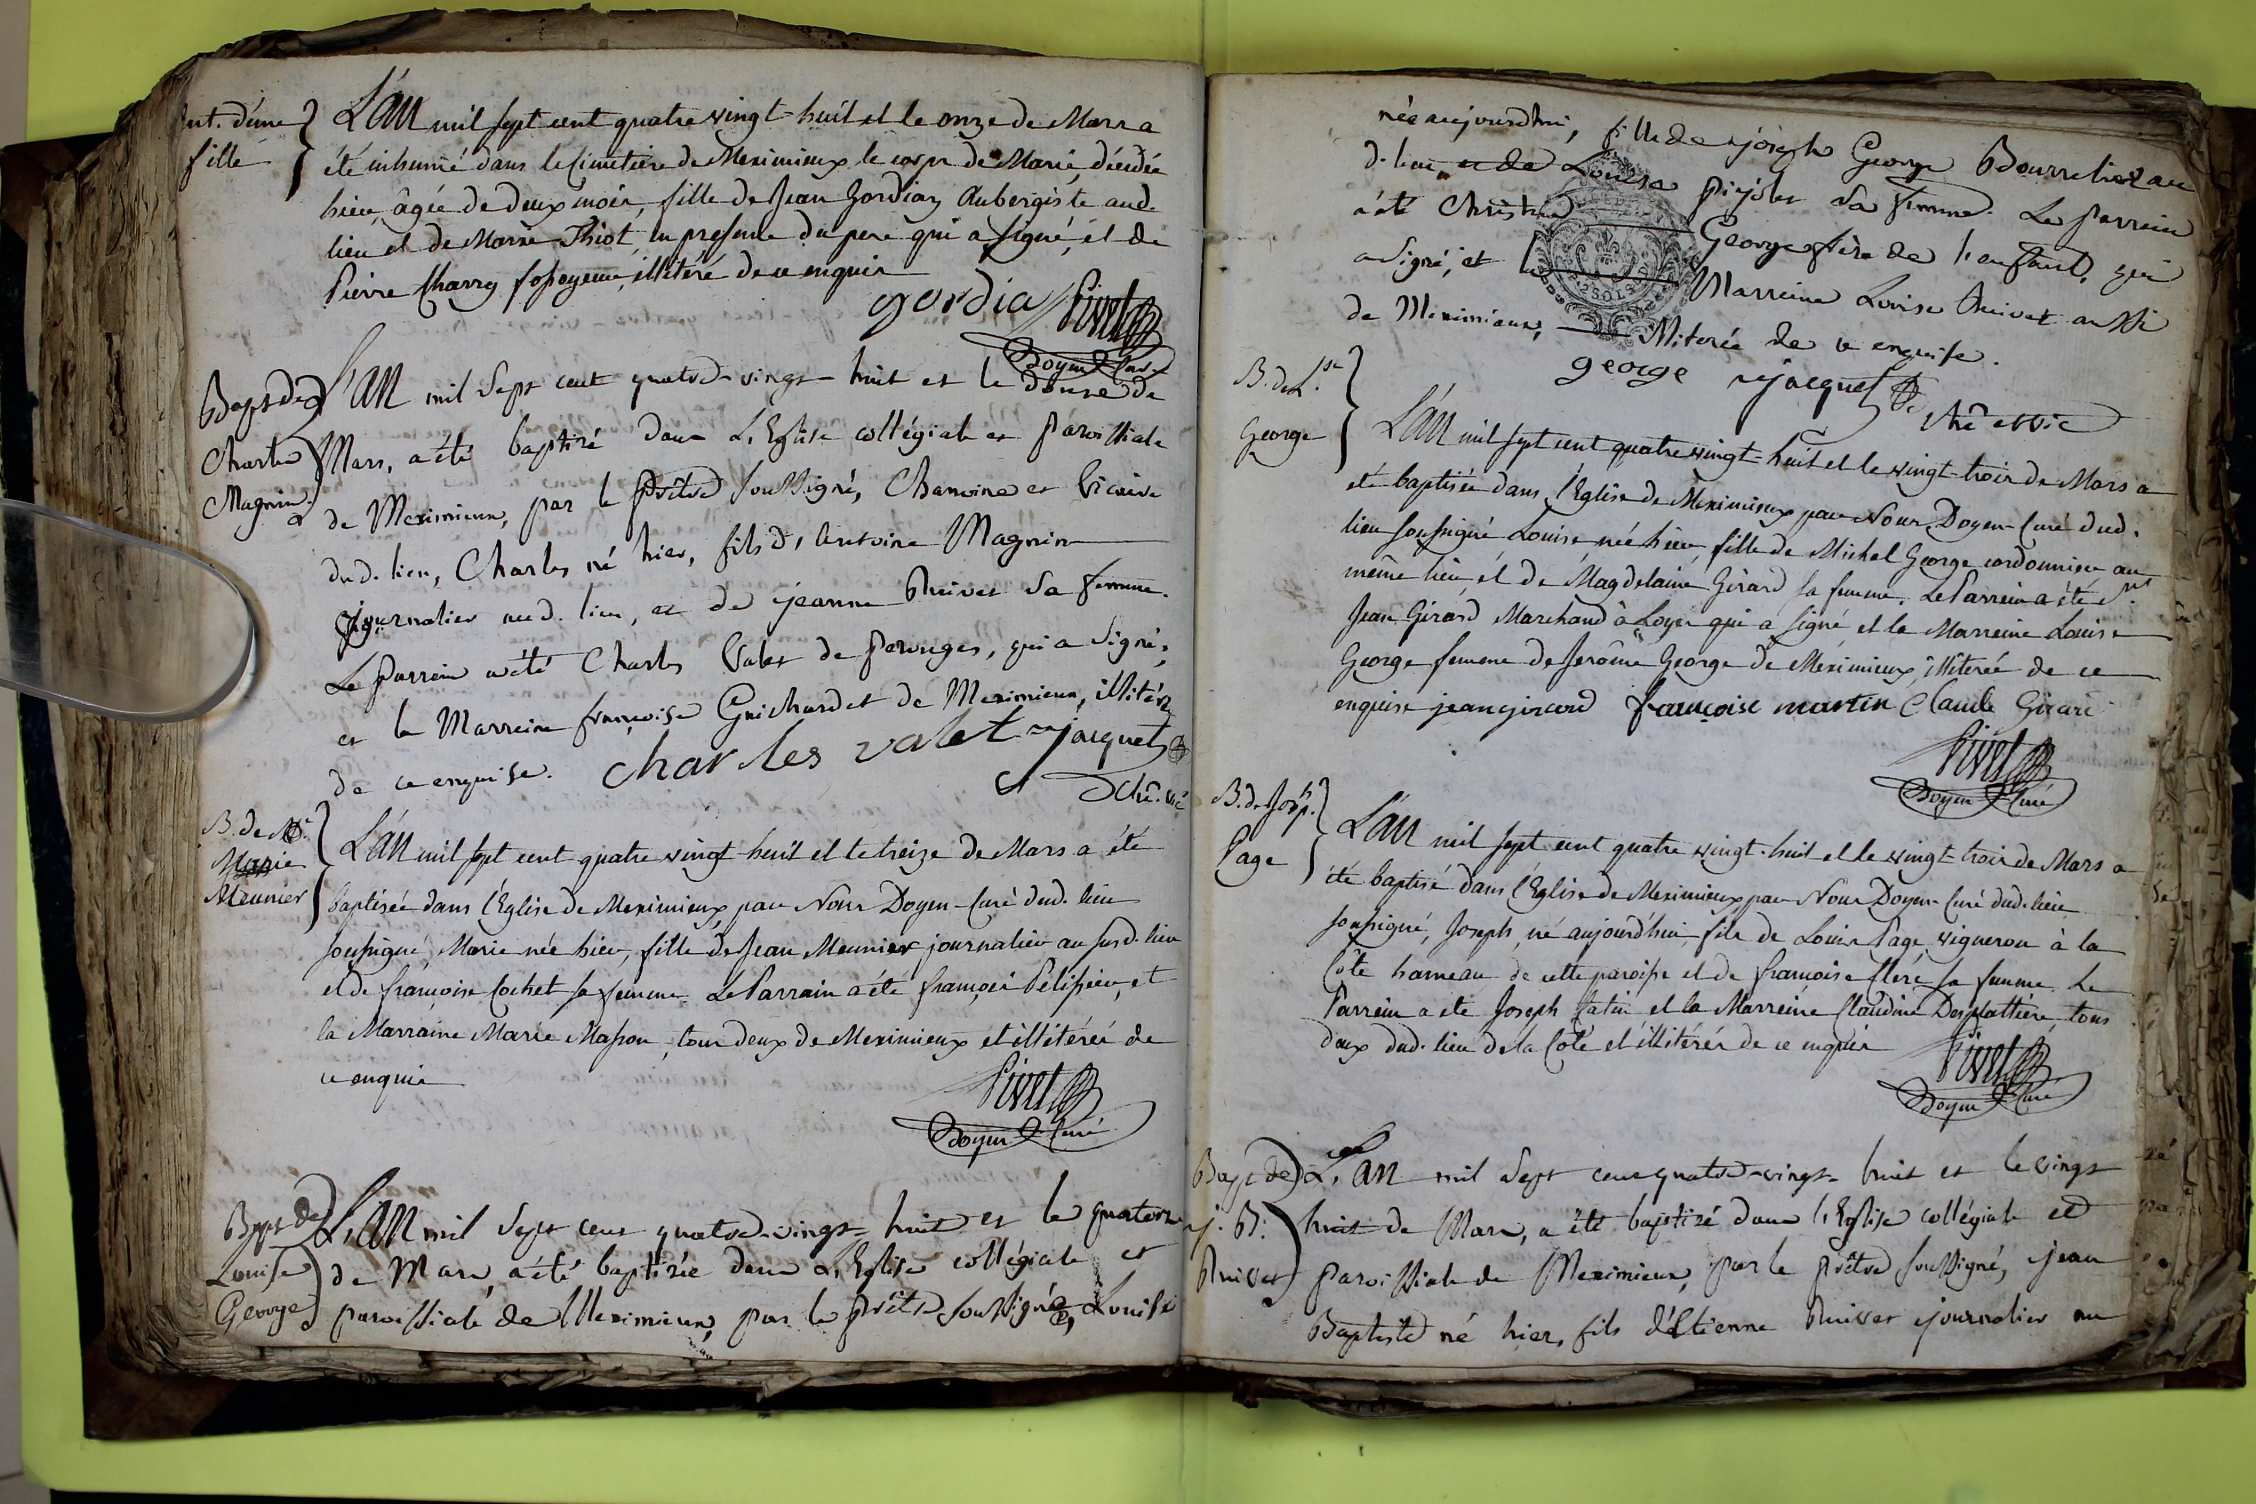 ent. d'une
fille
L'an mil sept cent quatre vingt-huit et le onze de Mars a
été inhumé dans le Cimetière de Meximieux le corps de Marie, décédée
hier, âgée de deux mois, fille de Jean Gordian Aubergiste aud.
lieu et de Marie Thiot, en presence du pere qui a signé, et de
Pierre Charry fossoyeur, illitéré de ce enquis
gordia Pivet
Doyen Curé
Bapt. de
Charles
Magnin
L'an mil sept cent quatre-vingt-huit et le douse de
Mars, a été baptizé dans L'Eglise collégiale et paroissiale
de Meximieux, par le prêtre soussigné, Chanoine et Vicaire
dud. lieu, Charles né hier, fils d'Antoine Magnin
journalier aud. lieu, et de jeanne Thivet sa femme.
Le parrein a été Charles Valet de Perouges, qui a signé,
et la Marreine françoise Guichardet de Meximieux, illitérée
de ce enquise. charles valet jacquet
che. vic
B. de
Marie
Meunier
L'an mil sept cent quatre vingt-huit et le treize de Mars a été
baptisée dans l'Eglise de Meximieux par Nous Doyen-Curé dud. lieu
soussigné, Marie née hier, fille de Jean Meunier journalier au susd. lieu
et de françoise Cochet sa femme. Le Parrain a été françois Pelissier, et
la Marraine Marie Masson, tous deux de Meximieux et illitérés de
ce enquis
Pivet
Doyen Curé
Bapt. de
Louise
George
L'an mil sept cent quatre-vingt-huit et le quatorze
de Mars, a été baptizée dans L'Eglise collégiale et
paroissiale de Meximieux, par le prêtre soussigné, Louise
née aujourdhui, fille de joseph George Bourrelier au
d. lieu, et de Louise pijolet sa femme. Le parrein
a été Christ George frère de l'enfant, qui
a signé, et la Marreine Louise Thivet aussi
de Meximieux, illiterée de ce enquise.
george jacquet
che et vic
B. de L.se
George
L'an mil sept cent quatre vingt-huit et le vingt-trois de Mars a
été baptisée dans l'Eglise de Meximieux par Nous Doyen-Curé dud.
lieu soussigné Louise née hier, fille de Michel George cordonnier au
même lieu et de Magdelaine Girard sa femme. Le Parrein a été Sr.
Jean Girard Marchand à Loyes qui a signé et la Marreine Louise
George femme de Jerôme George de Meximieux illitérée de ce
enquise jean girard françoise martin Claude Girard
Pivet
Doyen Curé
B. de Josph.
Page
L'an mil sept cent quatre vingt-huit et le vingt-trois de Mars a
été baptisé dans l'Eglise de Meximieux par Nous Doyen-Curé dud. lieu
soussigné, Joseph, né aujourd'hui, fils de Louis Page, vigneron à la
Côte hameau de cette paroisse et de françoise Cléré sa femme. Le
Parrein a été Joseph Jatin et la Marreine Claudine Desplattière, tous
deux dud. lieu de la Côte et illitérés de ce enquis
Pivet
Doyen Curé
Bapt. de
j. B.
Thivet
L'an mil sept cent quatre-vingt-huit et le vingt
huit de Mars, a été baptizé dans l'Eglise collégiale et
paroissiale de Meximieux, par le prêtre soussigné, jean
Baptiste né hier, fils d'Etienne Thivet journalier au